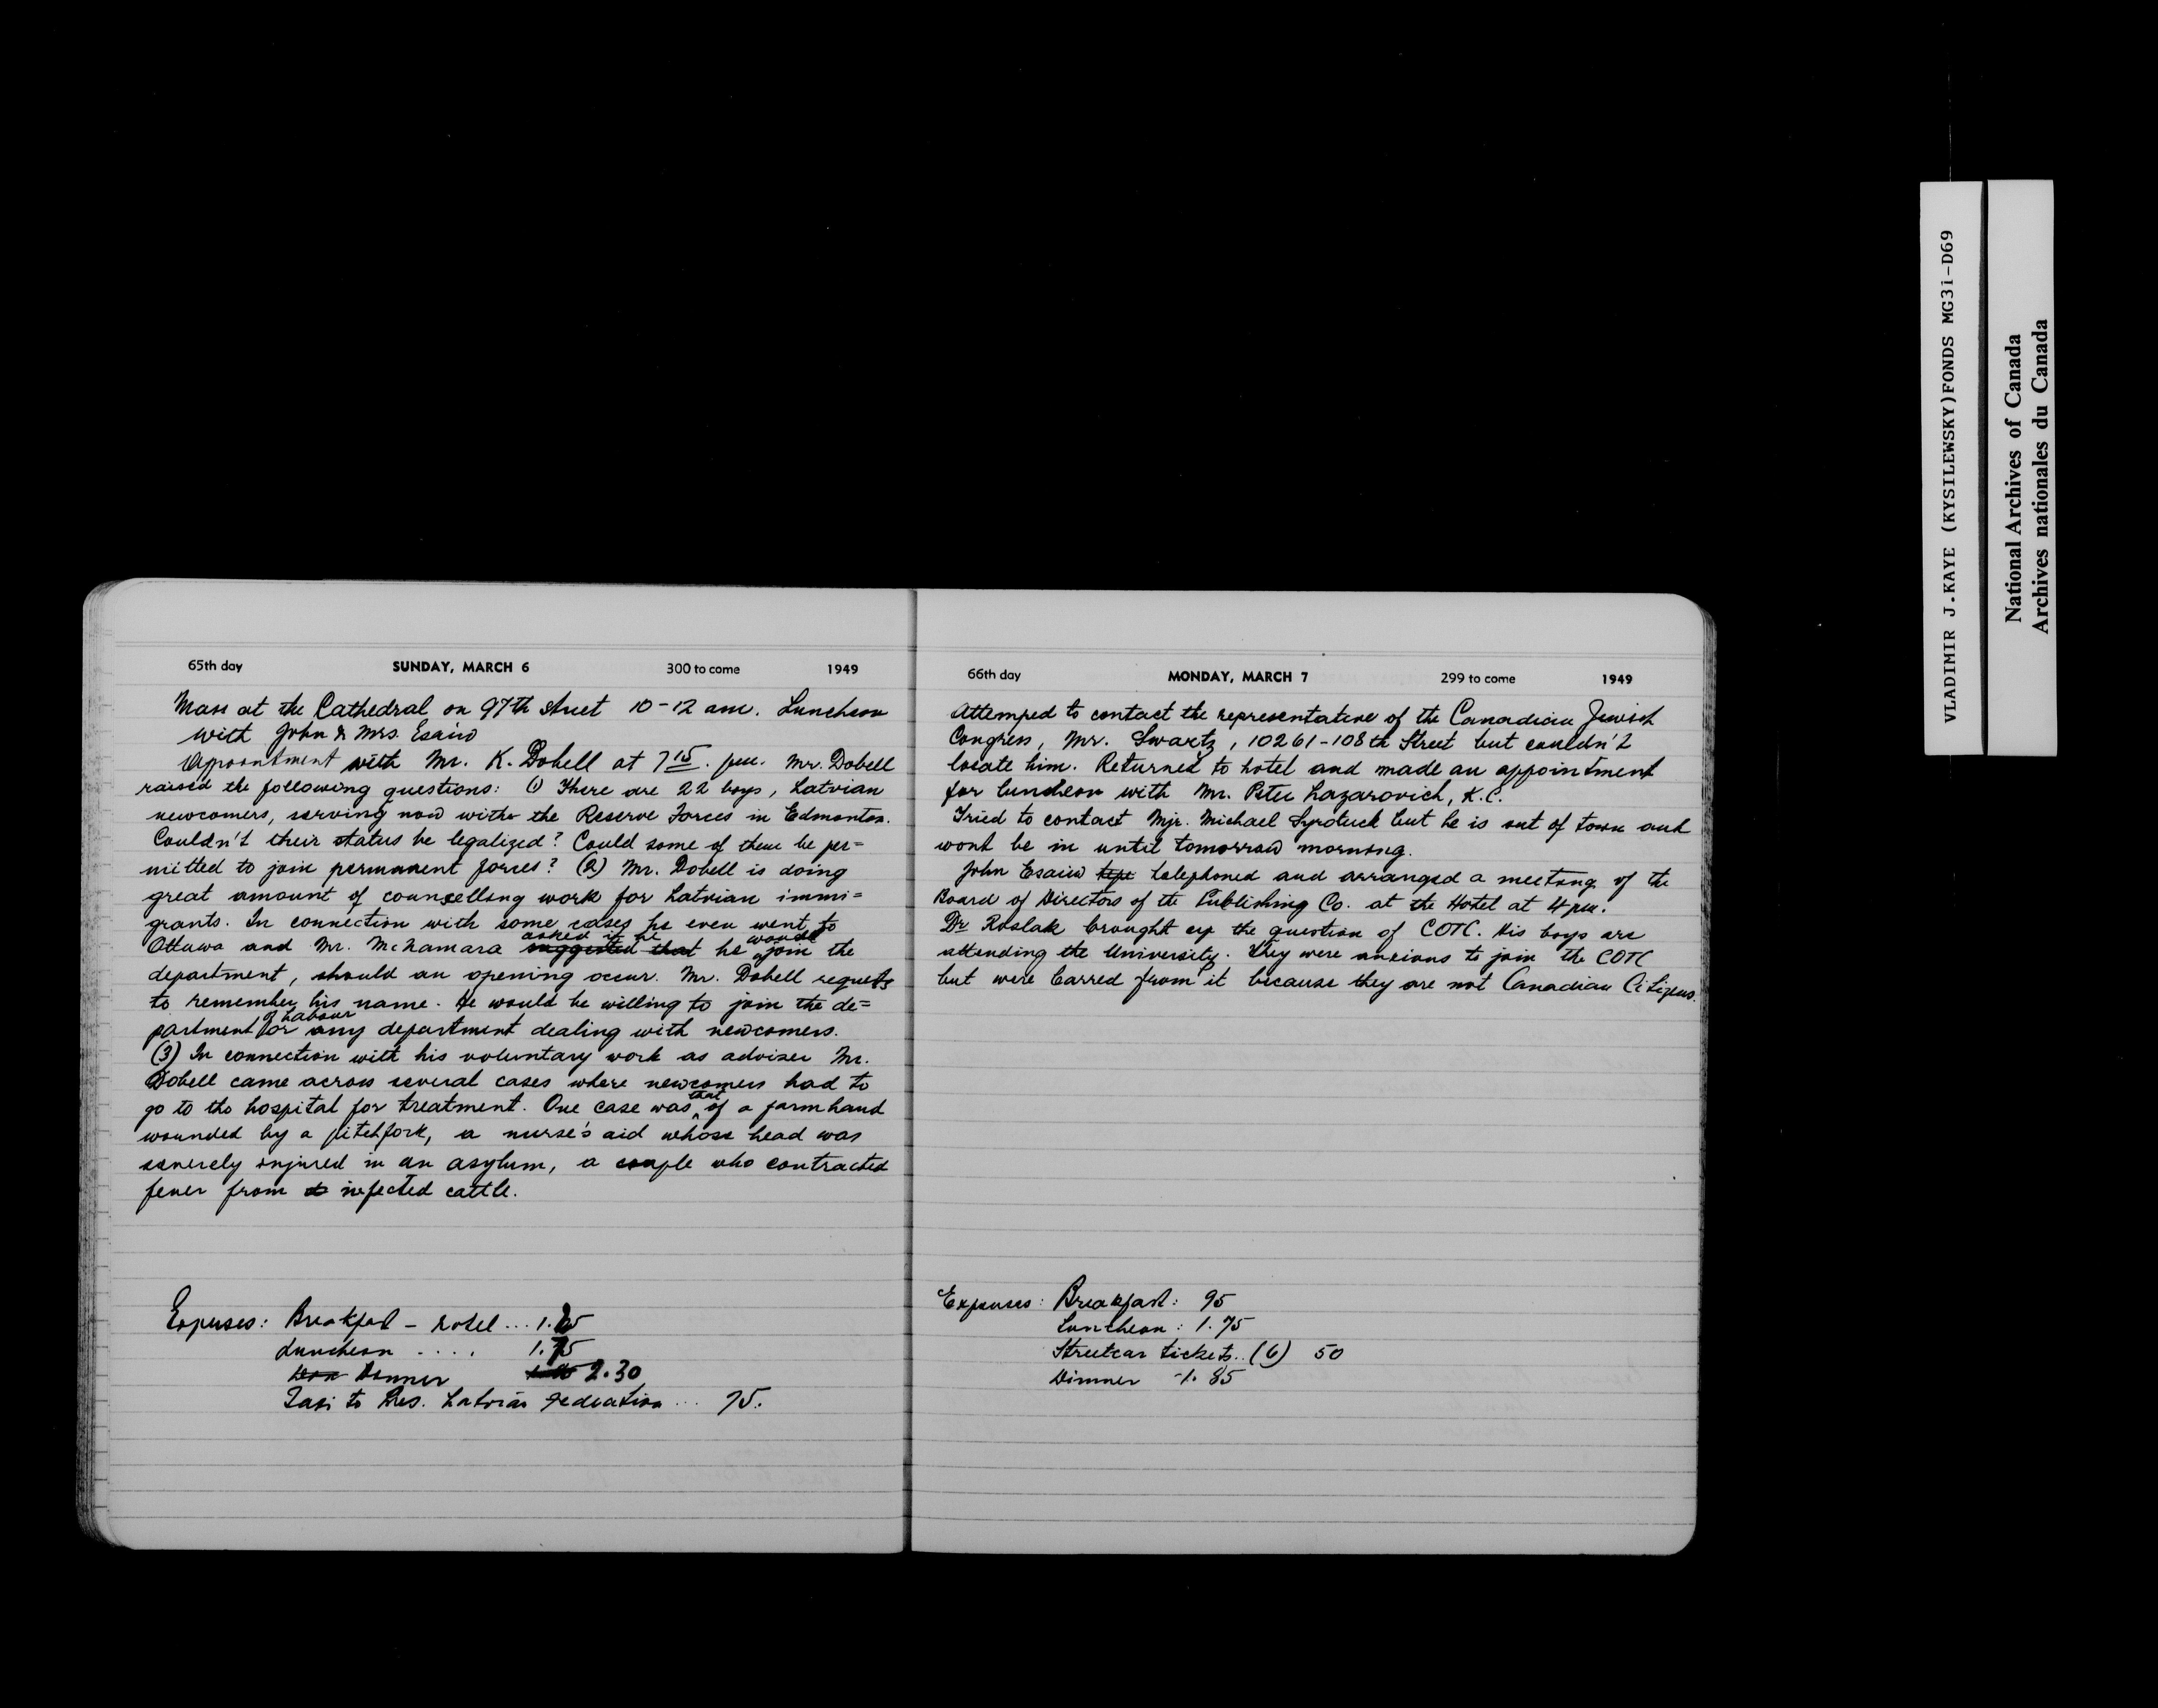 65th day SUNDAY, MARCH 6 300 to come 1949
Mass at the Cathedral on 97th street 10-12 am. Luncheon
with John & Mrs. Esaiw
Appointment with Mr. K. Dobell at 7 15. pm. Mr. Dobell
raised the following questions: (1) There are 22 boys, Latvian
newcomers, serving now with the Reserve Forces in Edmonton.
Couldn't their status be legalized? Could some of them be per=
mitted to join permanent forces? (2) Mr. Dobell is doing
great amount of councelling work for Latvian immi=
grants. In connection with some cases he even went to
Ottawa and Mr. McNamara suggested that asked if he he would join the
department, should an opening occur. Mr. Dobell requests
to remember his name. He would be willing to join the de=
partment of Labour or any department dealing with newcomers.
(3) In connection with his voluntary work as adviser Mr.
Dobell came across several cases where newcomers had to
go to the hospital for treatment. One case was that of a farmhand
wounded by a pitchfork, a nurse's aid whose head was
severely injured in an asylum, a couple who contracted
fever from infected cattle.
Expenses: Breakfast - hotel ...
Luncheon .... 1.75
Dinner 2.30
Taxi to Pres. Latvian Federation ... 75.
66th day MONDAY, MARCH 7 299 to come 1949
Attemped to contact the representative of the Canadian Jewish
Congress, Mr. Swartz, 10261-108th Street but couldn't
locate him. Returned to hotel and made an appointment
for luncheon with Mr. Peter Lazarovich, K.C.
Tried to contact Mjr. Michael Syrotuck but he is out of town and
wont be in until tomorrow morning.
John Esaiw telephoned and arranged a meeting of the
Board of Directors of the Publishing Co. at the Hotel at 4 pm.
Dr Roslak brought up the question of COTC. His boys are
attending the University. They were anxious to join the COTC
but were barred from it because they are not Canadian Citizens.
Expenses: Breakfast: 95
Luncheon: 1.75
Streetcar tickets.. (6) 50
Dinner -1.85
VLADIMIR J.KAYE (KYSILEWSKY)FONDS MG3i-D69
National Archives of Canada
Archives nationales du Canada